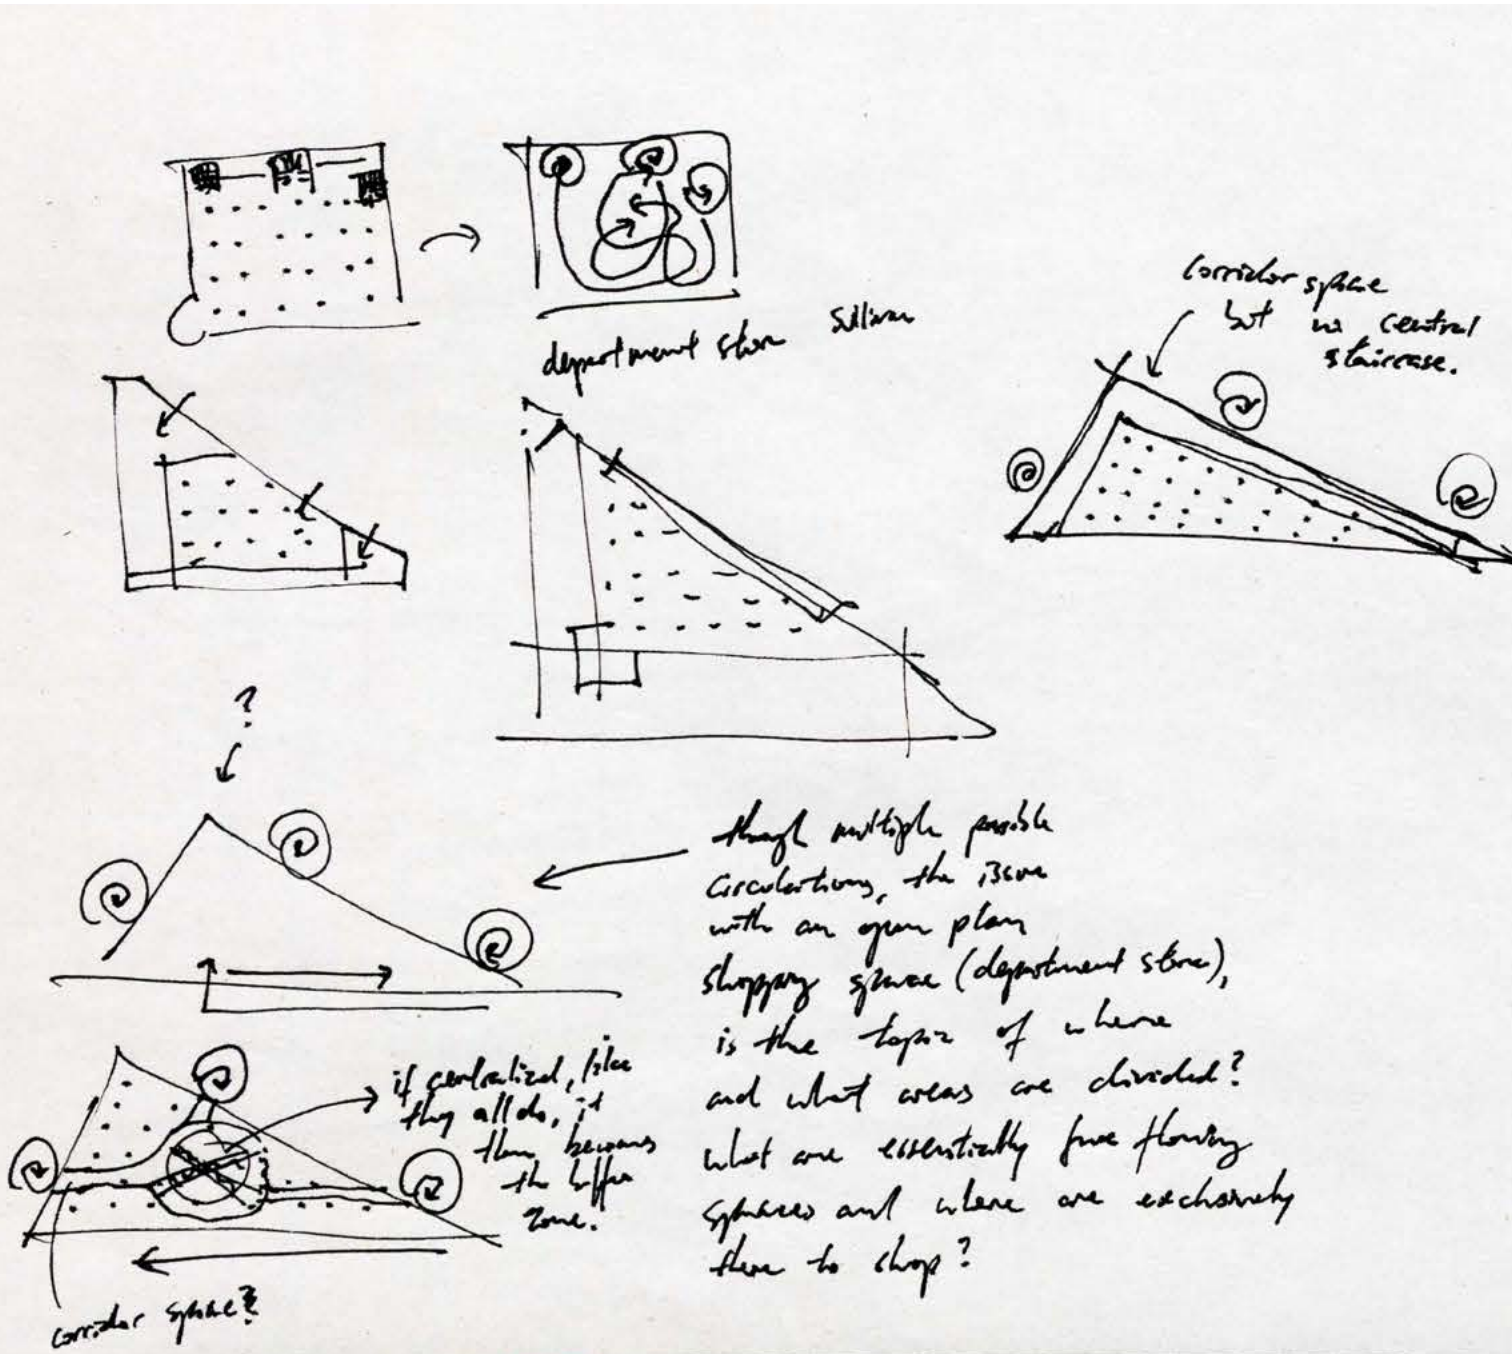 department store Sullivan
corridor space
but no central
staircase.
?
though multiple possible
circulations, the issue
with an open plan
shopping space (department store),
is the topic of where
and what areas are divided?
what are essentially free flowing
spaces and where are exclusively
there to shop?
if centralized, like
they all do, it
then becomes
the buffer
zone.
corridor space?